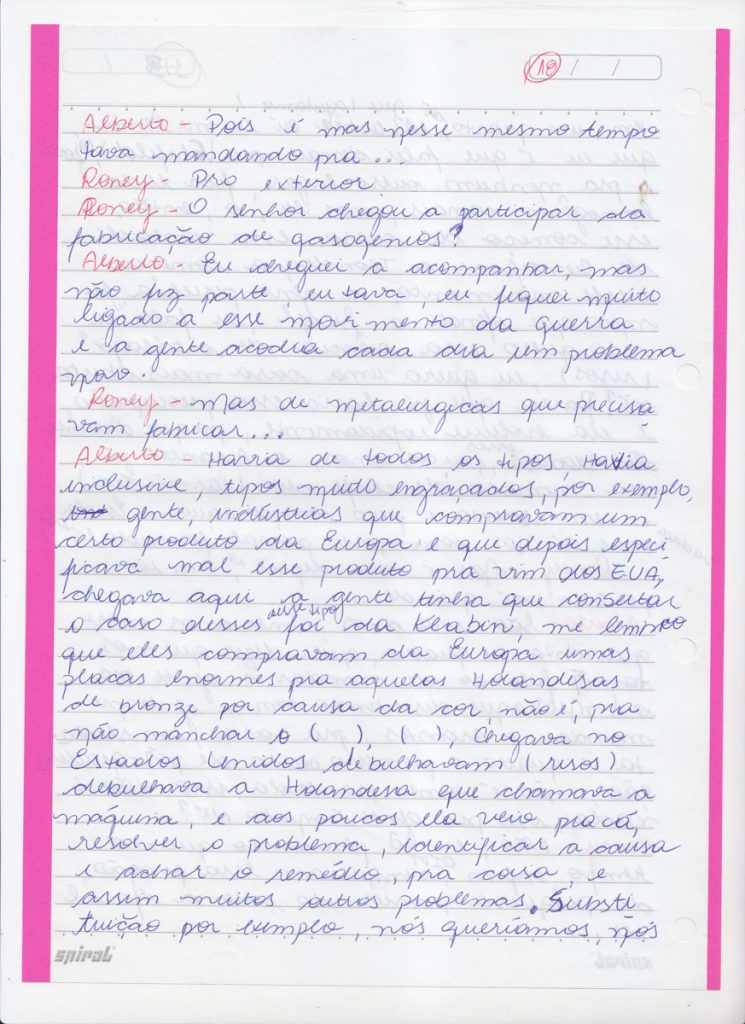 18 / /
Alberto - Pois é mas nesse mesmo tempo
tava mandando pra...
Roney - Pro exterior.
Roney - O senhor chegou a participar da
fabricação de gasogênios?
Alberto - Eu cheguei a acompanhar, mas
não fiz parte, eu tava, eu fiquei muito
ligado a esse movimento da guerra
e a gente acodia cada dia um problema
novo.
Roney - Mas de metalurgicas que precisa
vam fabricar...
Alberto - Havia de todos os tipos Havia
inclusive, tipos muito engraçados, por exemplo,
gente, indústrias que compravam um
certo produto da Europa e que depois especi
ficava mal esse produto pra vim dos EUA,
chegava aqui a gente tinha que consertar
o caso desses desse tipos foi da Klabin, me lembro
que eles compravam da Europa umas
placas enormes pra aquelas Holandesas
de bronze por causa da cor, não é, pra
não manchar o ( ), ( ), Chegava no
Estados Unidos debulhavam (risos)
debulhava a Holandesa que chamava a
máquina, e aos poucos ela veio pra cá,
resolver o problema, identificar a causa
e achar o remédio, pra casa, e
assim muitos outros problemas. Substi
tuição por exemplo, nós queríamos, nós
spiral